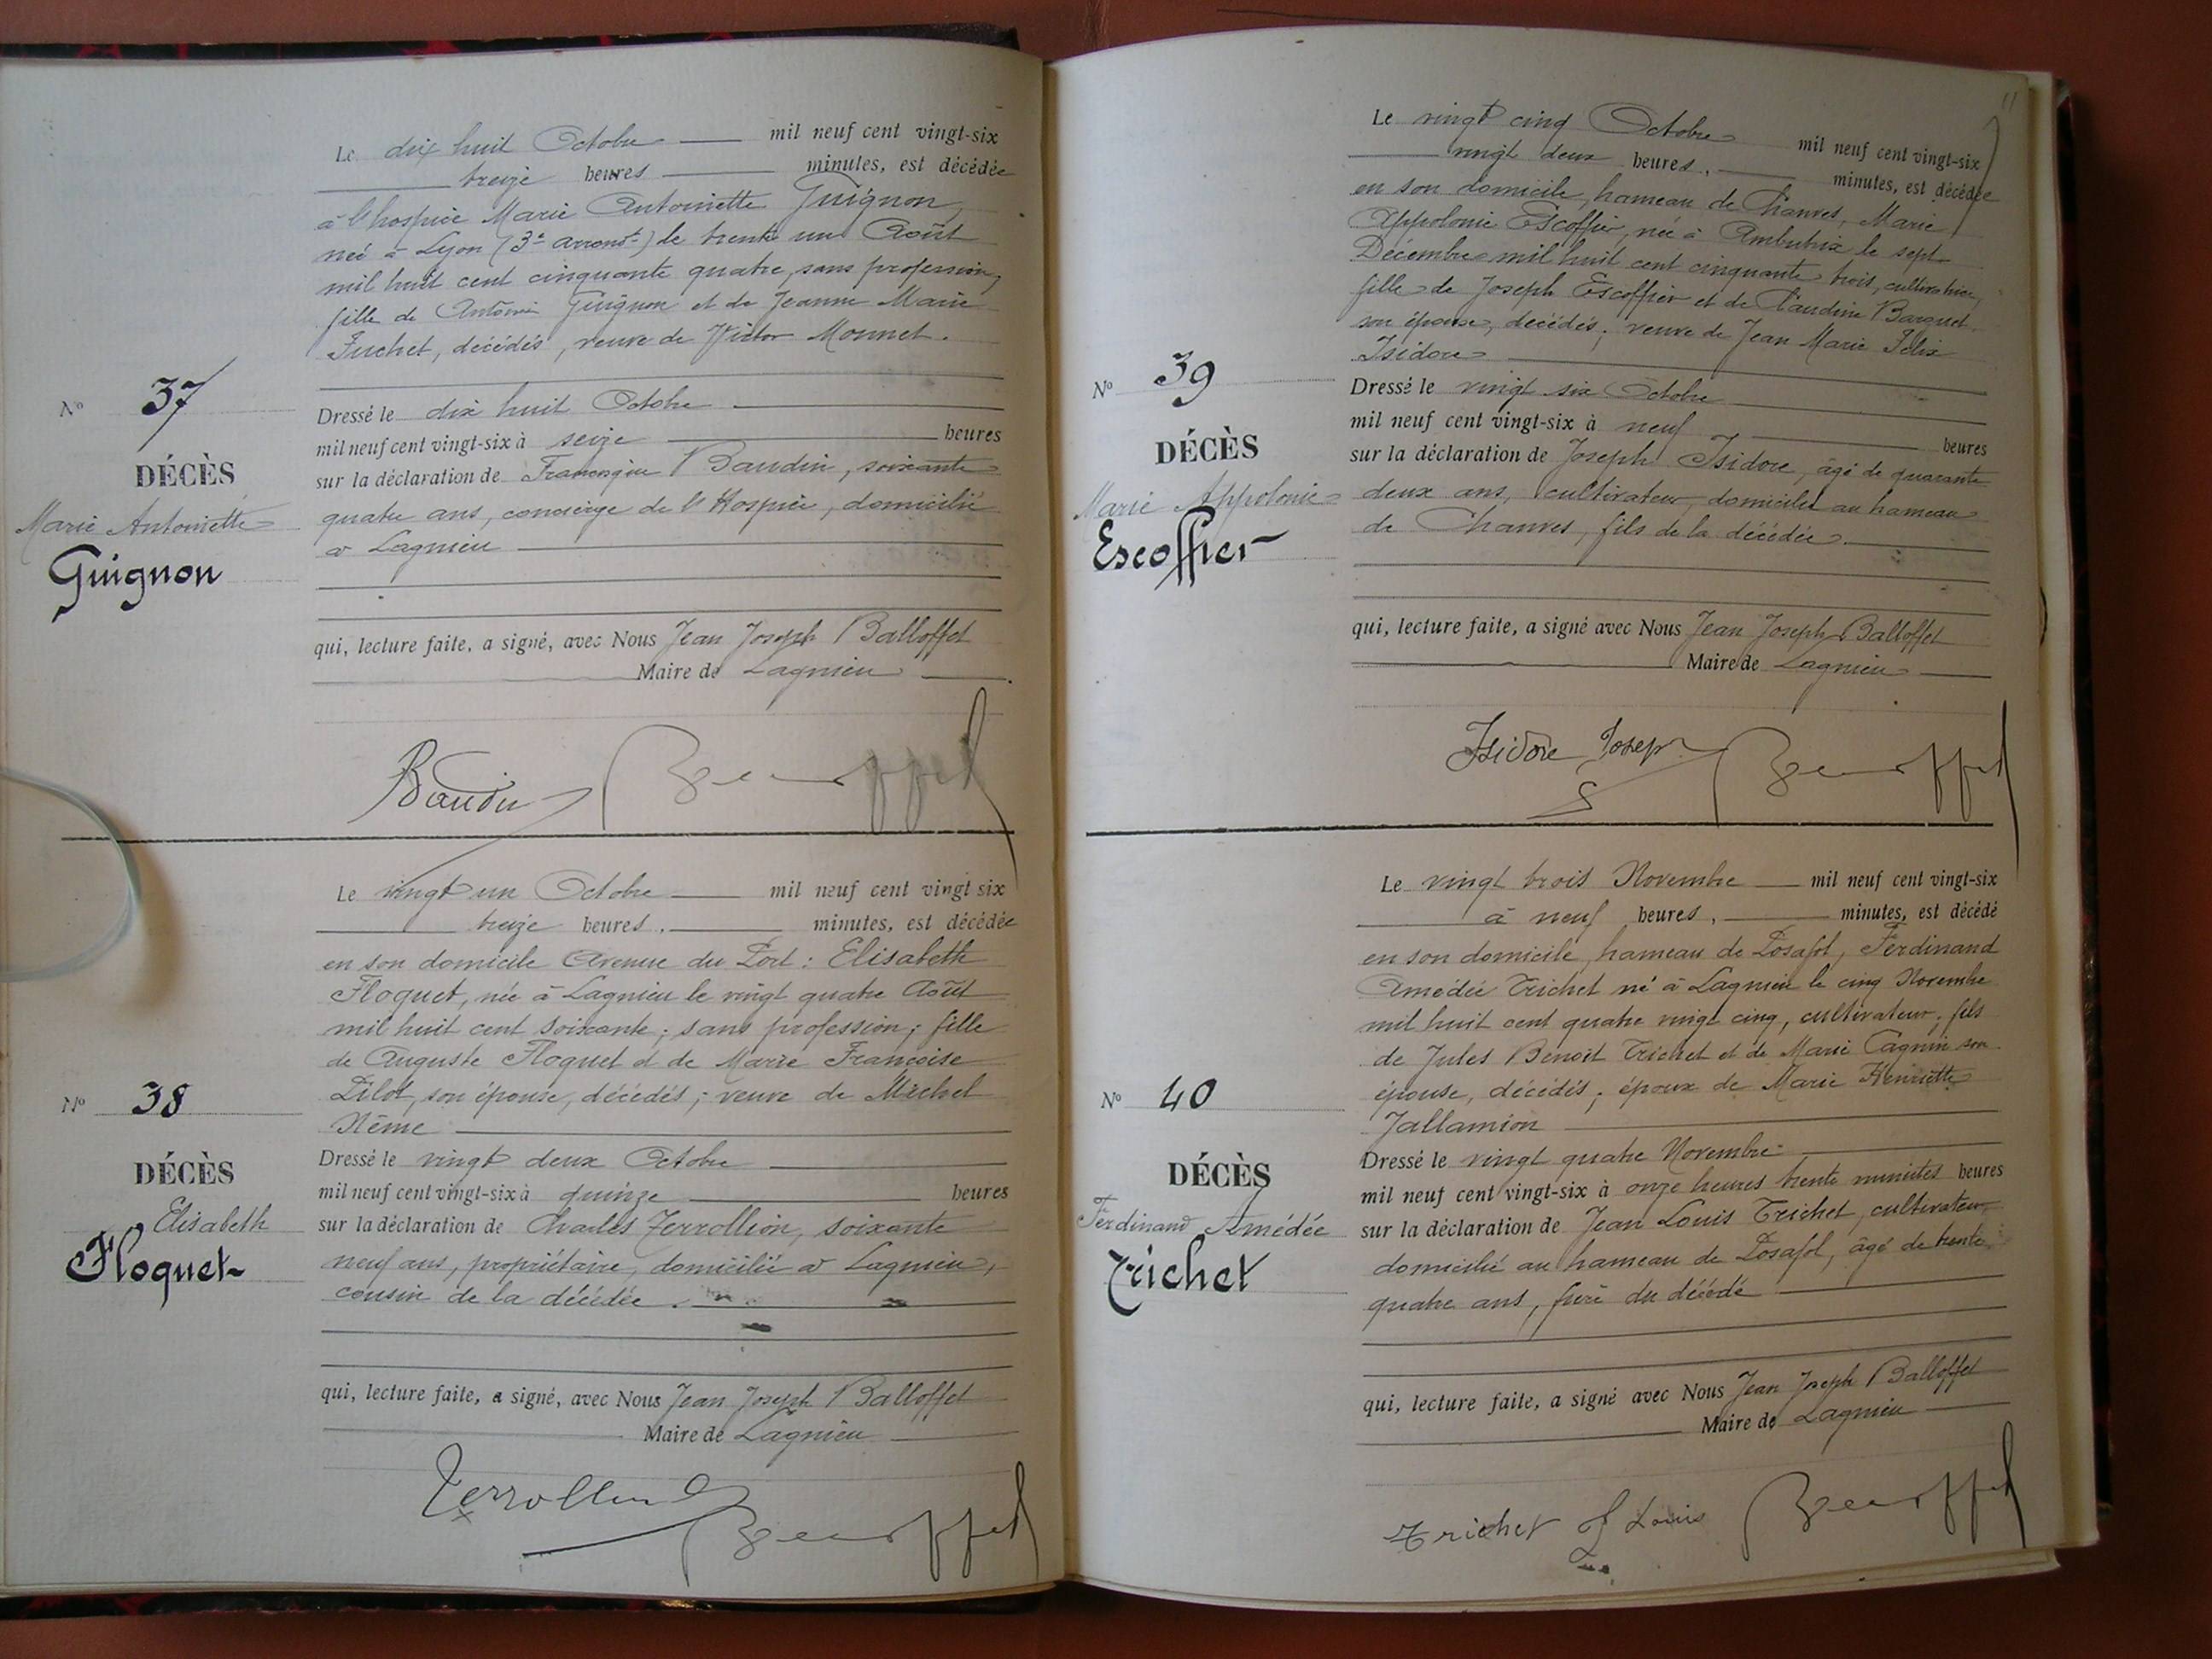 Le dix huit Octobre mil neuf cent vingt-six
treize heures minutes, est décédée
à l'hospice Marie Antoinette Guignon,
née à Lyon (3e arront) le trente un Août
mil huit cent cinquante quatre, sans profession,
fille de Antoine Guignon et de Jeanne Marie
Fuchet, décédés, veuve de Victor Monnet.
No 37
DÉCÈS
Marie Antoinette
Guignon
Dressé le dix huit Octobre
mil neuf cent vingt-six à seize heures
sur la déclaration de Baudin, soixante
quatre ans, concierge de l'Hospice, domicilié
à Lagnieu
qui, lecture faite, a signé, avec Nous Jean Joseph Balloffet
Maire de Lagnieu
Baudin Balloffet
Le vingt un Octobre mil neuf cent vingt six
treize heures, minutes, est décédée
en son domicile Avenue du Port : Elisabeth
Floquet, née à Lagnieu le vingt quatre Août
mil huit cent soixante ; sans profession ; fille
de Auguste Floquet et de Marie Françoise
Pilot, son épouse, décédés ; veuve de Michel
Nême
No 38
DÉCÈS
Elisabeth
Floquet
Dressé le vingt deux Octobre
mil neuf cent vingt-six à quinze heures
sur la déclaration de Charles Ferrollion, soixante
neuf ans, propriétaire, domicilié à Lagnieu,
cousin de la décédée.
qui, lecture faite, a signé, avec Nous Jean Joseph Balloffet
Maire de Lagnieu
Balloffet
11
Le vingt cinq Octobre mil neuf cent vingt-six
vingt deux heures, minutes, est décédée
en son domicile, hameau de Chanves, Marie
Appolonie Escoffier, née à Ambutrix le sept
Décembre mil huit cent cinquante trois, cultivatrice,
fille de Joseph Escoffier et de Claudine Barquet
son épouse, décédés ; veuve de Jean Marie Félix
Isidore
No 39
DÉCÈS
Marie Appolonie
Escoffier
Dressé le vingt six Octobre
mil neuf cent vingt-six à neuf heures
sur la déclaration de Joseph Isidore, âgé de quarante
deux ans, cultivateur, domicilié au hameau
de Chanves, fils de la décédée.
qui, lecture faite, a signé avec Nous Jean Joseph Balloffet
Maire de Lagnieu
Isidore Joseph Balloffet
Le vingt trois Novembre mil neuf cent vingt-six
à neuf heures, minutes, est décédé
en son domicile, hameau de Posafol, Ferdinand
Amédée Trichet né à Lagnieu le cinq Novembre
mil huit cent quatre vingt cinq, cultivateur ; fils
de Jules Benoit Trichet et de Marie Cagnin son
épouse, décédés ; époux de Marie Henriette
Jallamion
No 40
DÉCÈS
Ferdinand Amédée
Trichet
Dressé le vingt quatre Novembre
mil neuf cent vingt-six à onze heures trente minutes heures
sur la déclaration de Jean Louis Trichet, cultivateur
domicilié au hameau de Posafol, âgé de trente
quatre ans, frère du décédé
qui, lecture faite, a signé avec Nous Jean Joseph Balloffet
Maire de Lagnieu
Trichet J Louis Balloffet